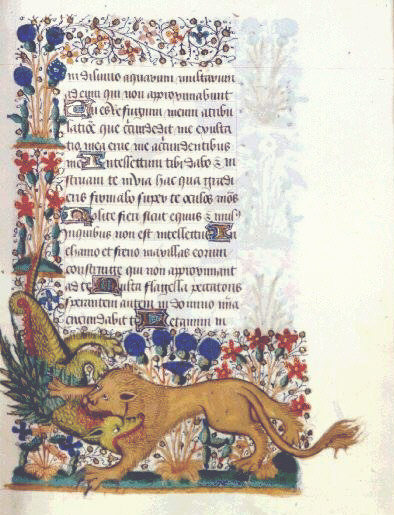 in diluvio aquarum multarum
ad eum qui non approximabunt
Tu es refugium meum a tribu
latione que circundedit me exulta
tio mea erue me a circundentibus
me Intellectum tibi dabo et in
struam te in via hac qua gradi
eris firmabo super te oculos meos
Nolite fieri sicut equus et mulus
in quibus non est intellectus In
chamo et freno maxillas eorum
constringe qui non approximant
ad te Multa flagella peccatoris
sperantem autem in domino mia
circundabit Letamini in